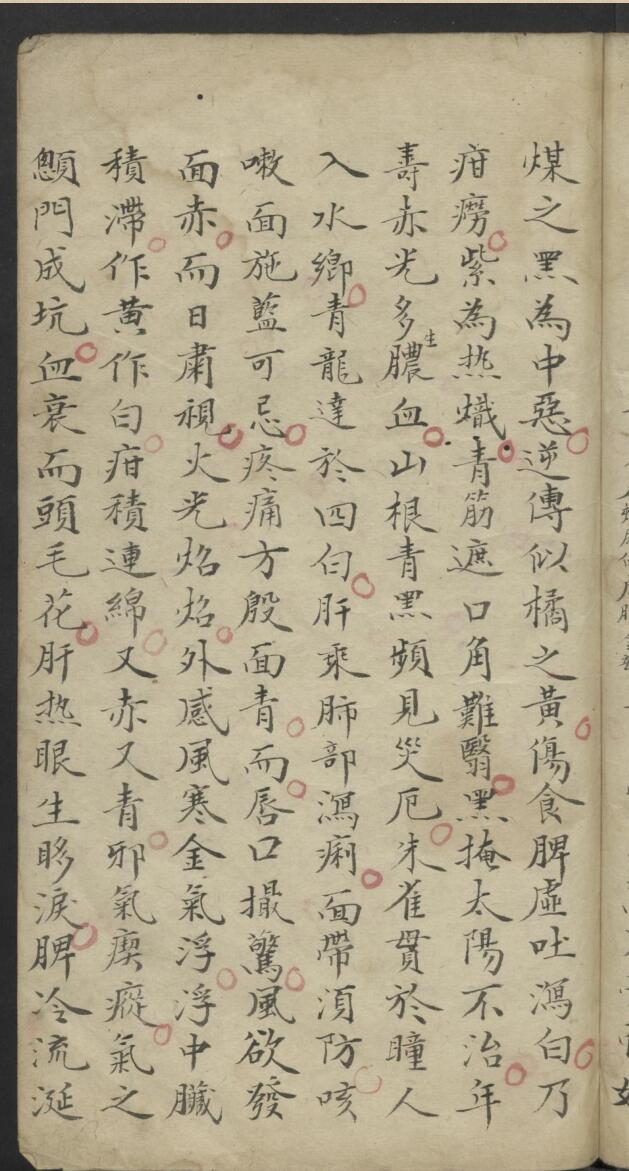 煤之黑為中惡逆傳似橘之黃傷食脾虛吐瀉白乃
疳癆紫為热熾青筋遮口角難醫黑掩太陽不治年
壽赤光多生膿血山根青黑頻見災厄朱雀貫於瞳人
入水鄉青龍達於四白肝乘肺部瀉痢面帶須防咳
嗽面施藍可忌疼痛方殷面青而唇口撮驚風欲發
面赤而日肅視火光焰焰外感風寒金氣浮浮中臟
積滯作黃作白疳積連綿又赤又青邪氣瘈瘲氣之
顖門成坑血衰而頭毛花肝热眼生眵淚脾冷流涎